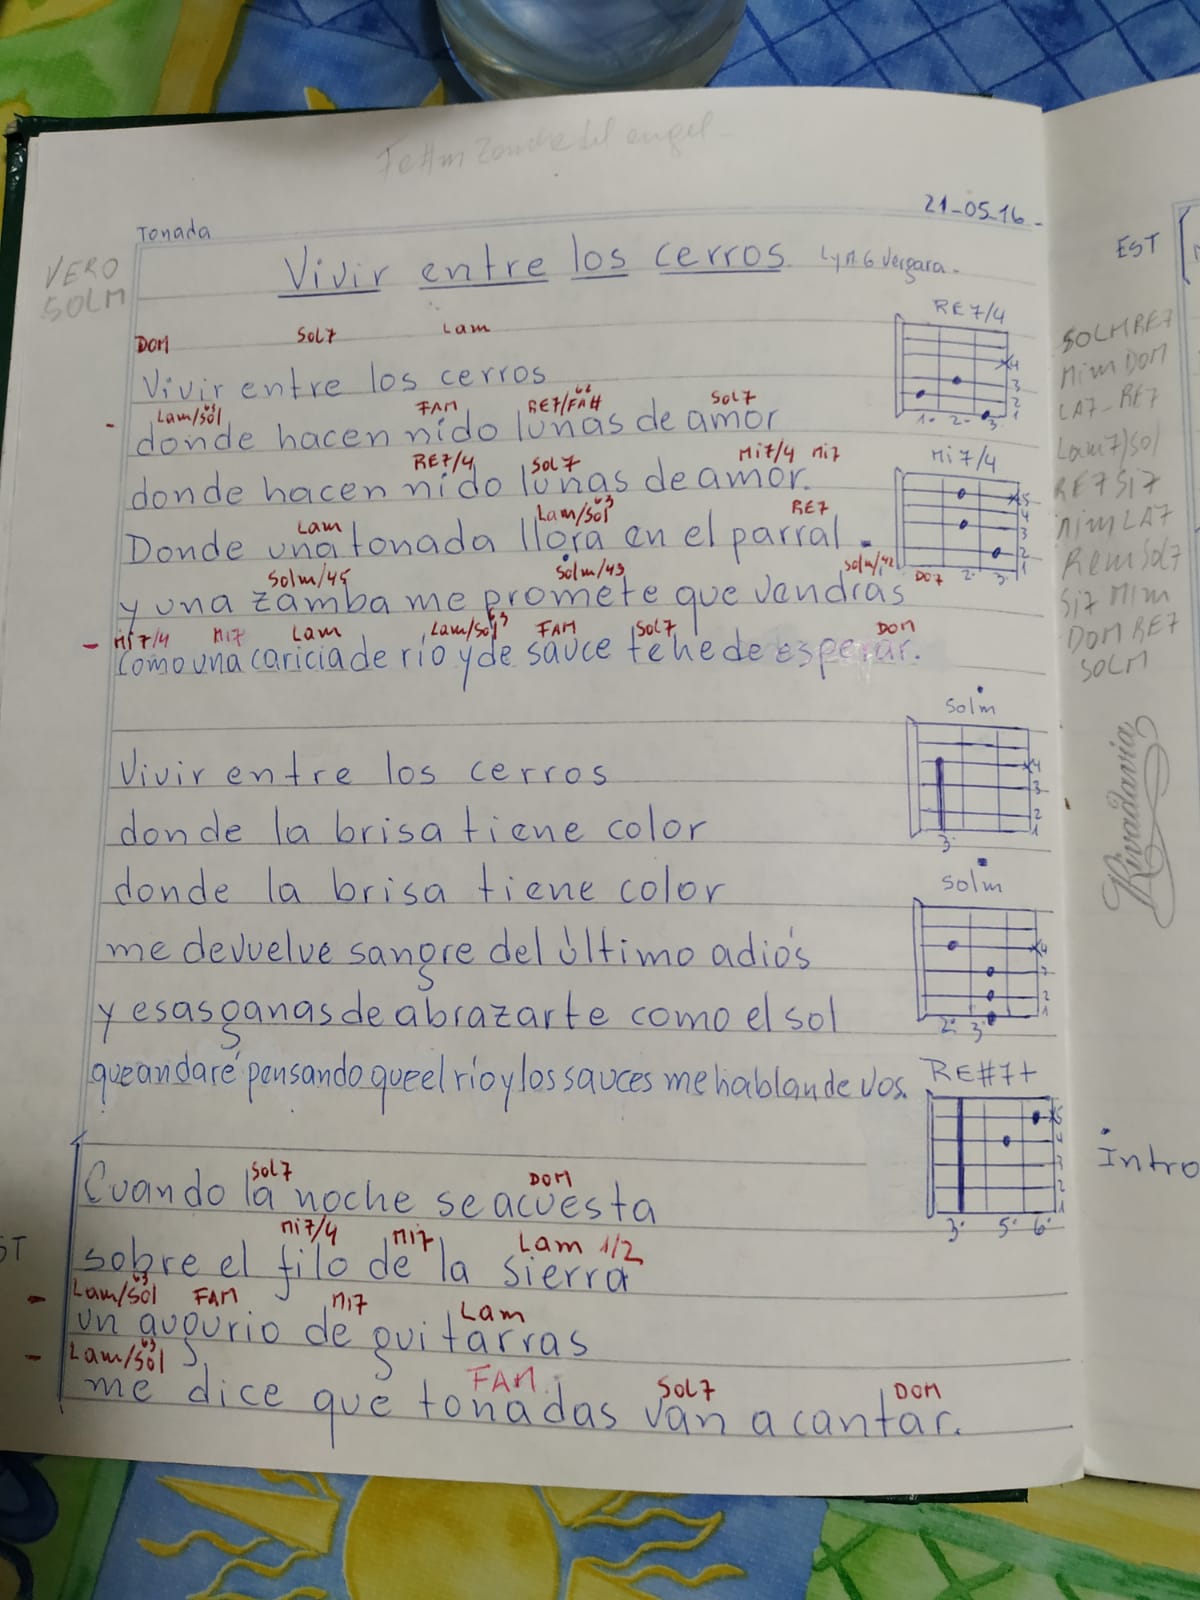 Zamba del angel -
21-05-16-
Tonada
VERO
SOLM
Vivir entre los cerros LyM. G Vergara.
DOM Sol7 Lam
Vivir entre los cerros
Lam/sol FAM RE7/FA# SOL7
- donde hacen nido lunas de amor
RE7/4 SOL7 Mi7/4 Mi7
donde hacen nido lunas de amor.
Lam Lam/sol RE7
Donde una tonada llora en el parral.
Solm/45 Solm/43 Solm/42 DO7
y una zamba me promete que vendras
Mi7/4 Mi7 Lam Lam/sol FAM SOL7 DOM
- como una caricia de río y de sauce te he de esperar.
Vivir entre los cerros
donde la brisa tiene color
donde la brisa tiene color
me devuelve sangre del último adiós
y esas ganas de abrazarte como el sol
que andaré pensando que el río y los sauces me hablan de vos.
SOL7 DOM
Cuando la noche se acuesta
Mi7/4 Mi7 Lam 1/2
sobre el filo de la sierra
Lam/sol FAM Mi7 Lam
- un augurio de guitarras
Lam/sol FAM SOL7 DOM
- me dice que tonadas van a cantar.
ST
RE7/4
4
3
2
1
1· 2· 3·
Mi7/4
5
4
3
2
1
2· 3·
Solm
4
3
2
1
3·
Solm
4
3
2
1
2· 3·
RE#7+
5
4
3
2
1
3· 5· 6·
EST
SOLM RE7
Mim DOM
LA7-RE7
Lam7/sol
RE7 Si7
Mim LA7
Rem Sol7
Si7 Mim
DOM RE7
SOLM
Rivadavia
Intro